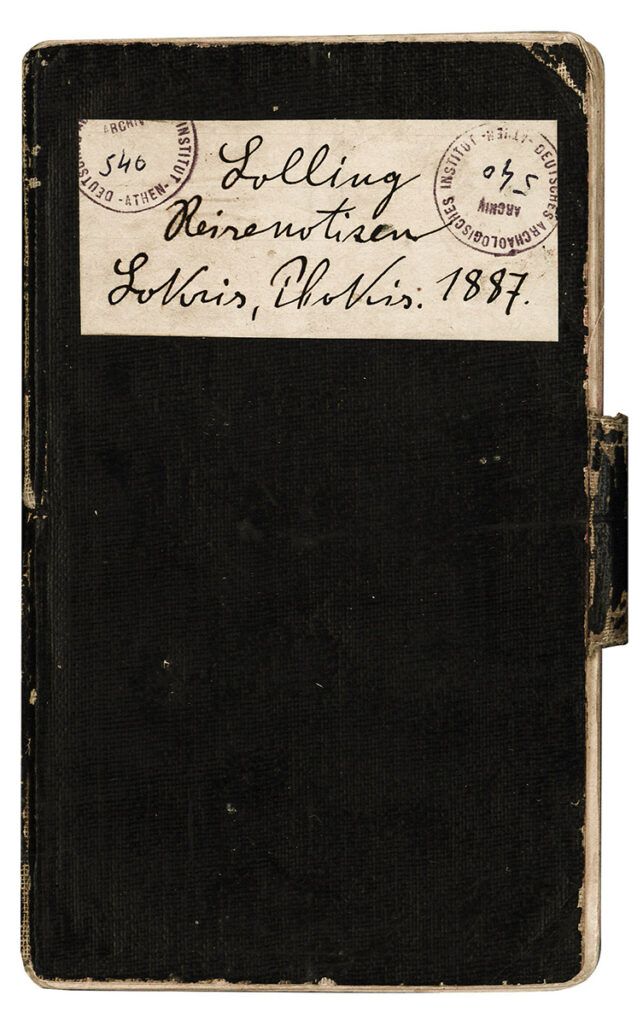 ARCHIV
540
INSTITUT -ATHEN- DEUTSCH
Lolling
Reisenotizen
Lokris, Phokis. 1887.
DEUTSCHES ARCHAOLOGISCHES INSTITUT -ATHEN-
ARCHIV
540